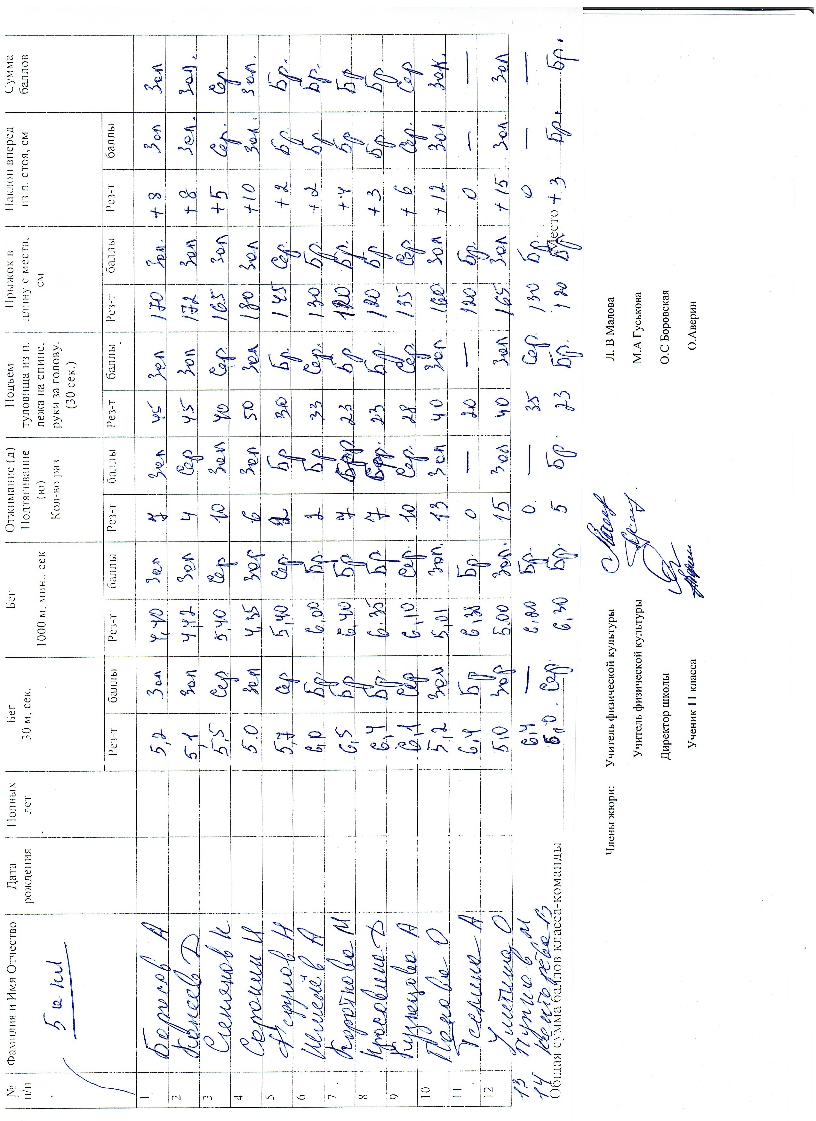 № п/п Фамилия и Имя Отчество Дата рождения Полных лет Бег 30 м, сек. Бег 1000 м, мин., сек Отжимание (д) Подтягивание (ю) Кол-во раз Подъем туловища из п. лежа на спине, руки за голову. (30 сек.) Прыжок в длину с места, см Наклон вперед из п. стоя, см Сумма баллов
5 а кл
Рез-т баллы Рез-т баллы Рез-т баллы Рез-т баллы Рез-т баллы Рез-т баллы
1 Борисов А 5,2 Зол 4,40 Зол 7 Зол 45 Зол 170 Зол. +8 Зол Зол
2 Д 5,1 Зол 4,42 Зол 4 Сер 45 Зол 172 Зол +8 Зол. Зол.
3 Степанов К. 5,5 Сер 5,40 Сер 10 Зол 40 Сер. 165 Зол +5 Сер. Сер.
4 Сорокин И 5.0 Зол 4,35 Зол 6 Зол 50 Зол 180 Зол +10 Зол. Зол.
5 Федулов Н 5,7 Сер 5,40 Сер. 2 Бр 30 Бр. 145 Сер +2 Бр Бр.
6 А 6,0 Бр. 6,00 Бр. 2 Бр 33 Сер. 130 Бр. +2 Бр Бр.
7 Короткова М 6,5 Бр 6,40 Бр 7 Бр 23 Бр 120 Бр. Бр Бр
8 Д 6,4 Бр. 6.35 Бр 7 Бр. 23 Бр. 120 Бр +3 Бр. Бр.
9 Кузнецова А 6,1 Сер 6,10 Сер. 10 Сер. 28 Сер 135 Сер +6 Сер. Сер
10 Панова О 5,2 Зол 5,01 Зол. 13 Зол 40 Зол 160 Зол +12 Зол Зол.
11 А 6,4 Бр 6,38 Бр. 0 — 20 — 120 Бр. 0 — —
12 Улитина О 5,0 Зол 5.00 Зол. 15 Зол 40 Зол 165 Зол +15 Зол. Зол
13 М 6,4 — 6,20 Бр. 0. — 35 Сер 130 Бр. 0 — —
14 5,0. Сер 6,30 Бр. 5 Бр. 23 Бр. 120 Бр +3 Бр. Бр.
Общая сумма баллов класса-команды Место
Члены жюри: Учитель физической культуры Л. В Малова
Учитель физической культуры М.А Гуськова
Директор школы О.С Боровская
Ученик 11 класса О.Аверин